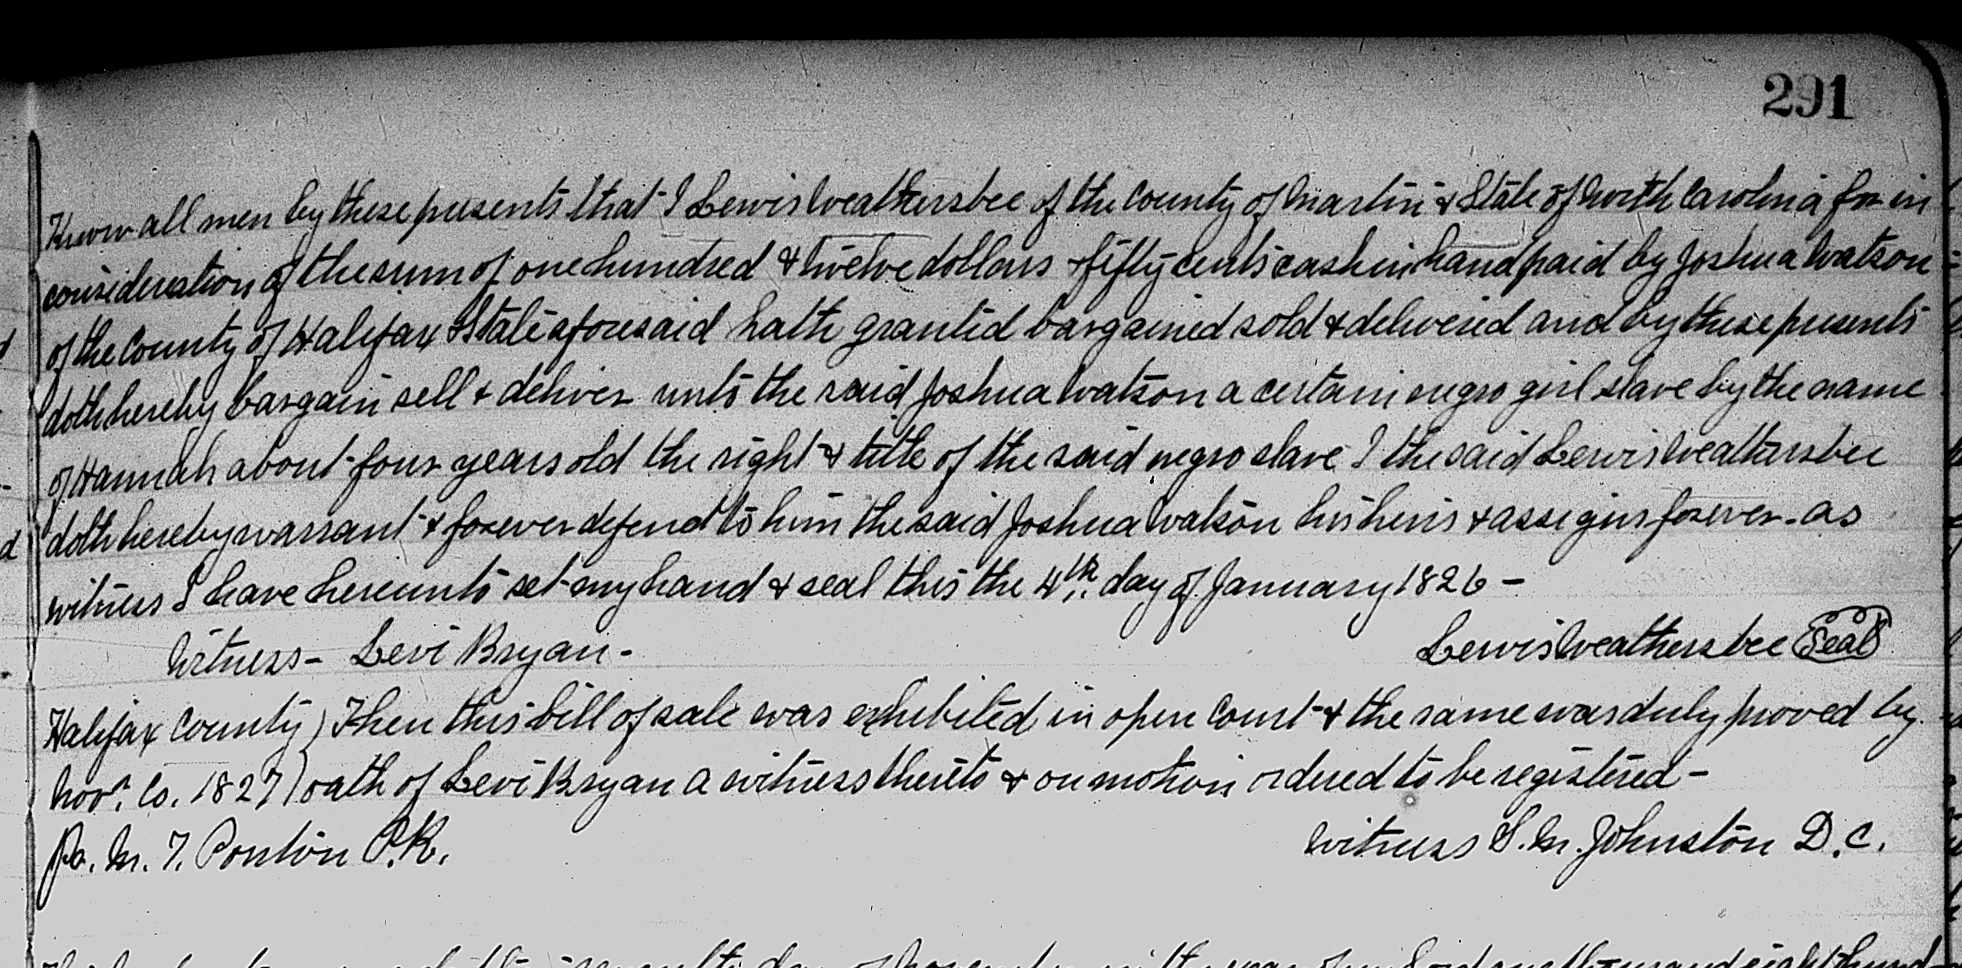 291
Know all men by these presents that I Lewis Weathersbee of the County of Martin & State of North Carolina for in
consideration of the sum of one hundred & twelve dollars & fifty cents cash in hand paid by Joshua Watson
of the County of Halifax & State aforesaid hath granted bargained sold & delivered and by these presents
doth hereby bargain sell & deliver unto the said Joshua Watson a certain negro girl slave by the name
of Hannah about four years old the right & title of the said negro slave I the said Lewis Weathersbee
doth hereby warrant & forever defend to him the said Joshua Watson his heirs & assigns forever - as
witness I have hereunto set my hand & seal this the 4th day of January 1826 -
Witness - Levi Bryan - Lewis Weathersbee Seal
Halifax County ) Then this bill of sale was exhibited in open Court & the same was duly proved by
Novr. Co. 1827 ) oath of Levi Bryan a witness thereto & on motion ordered to be registered -
M. T. Ponton P.R. Witness S. M. Johnston D.C.